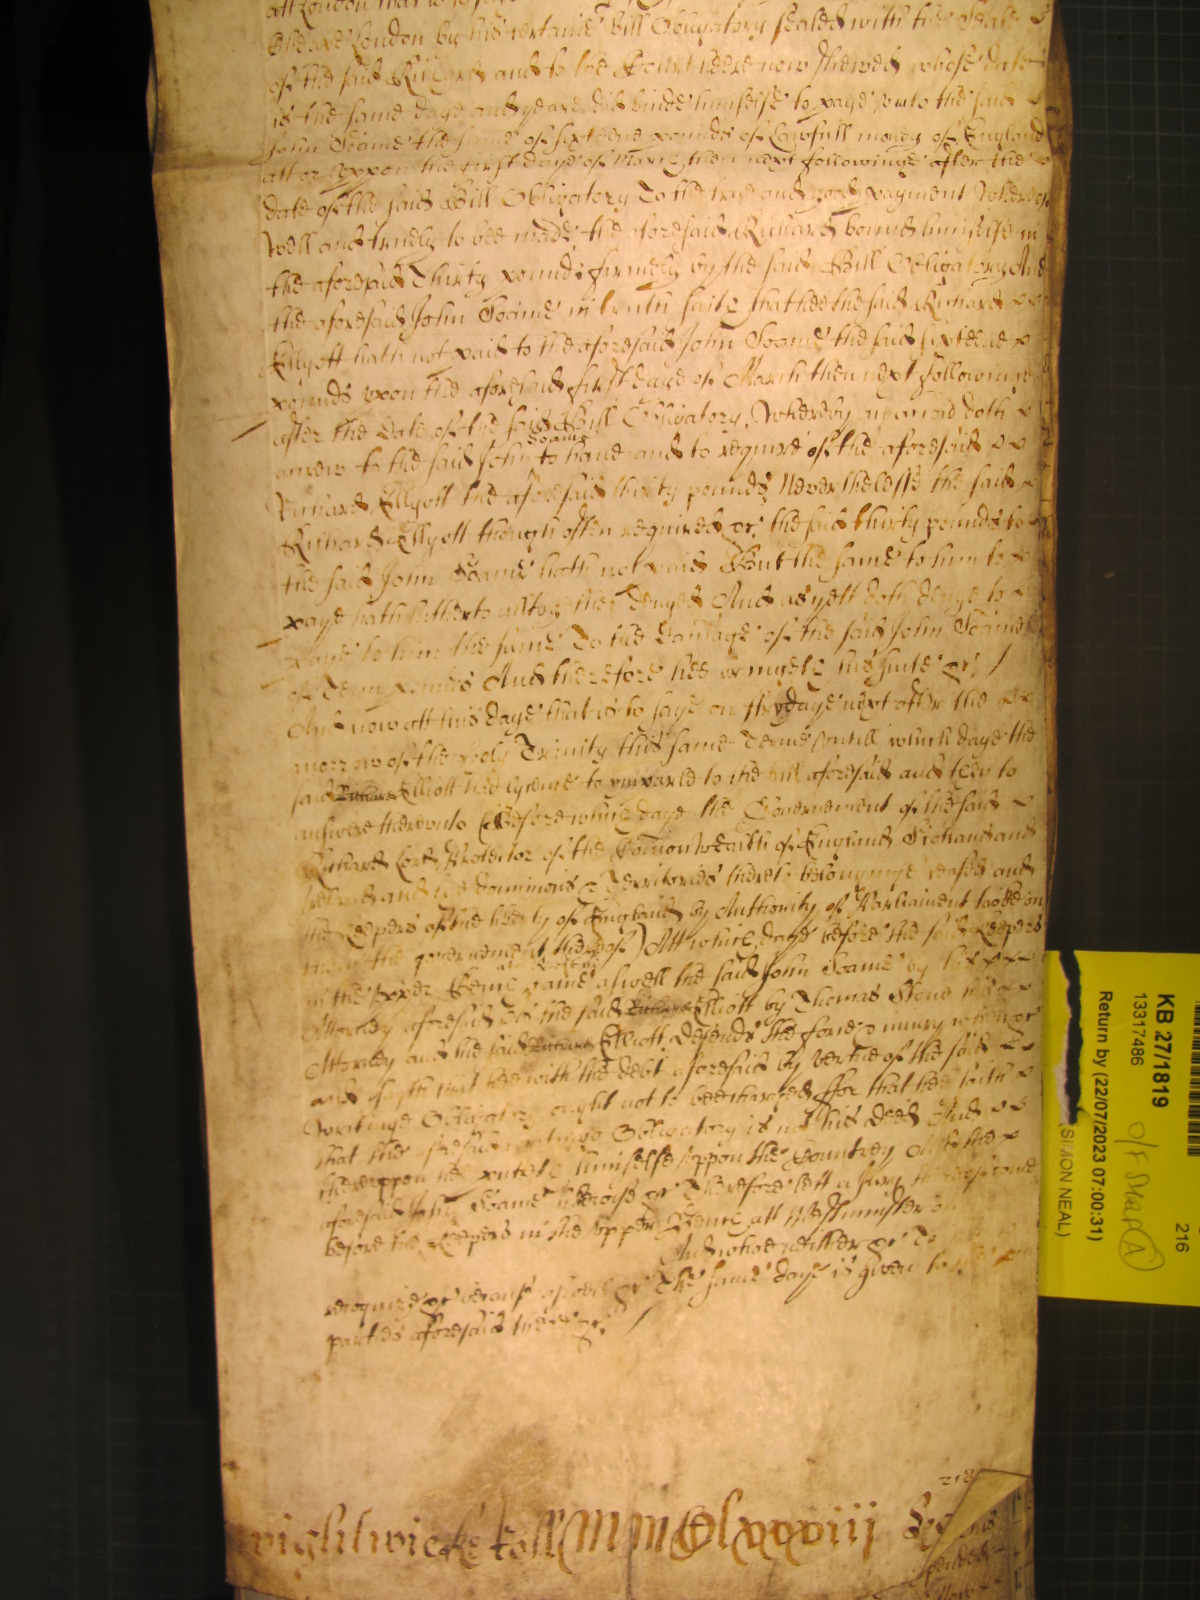 att London that is to say
Warde London by his certaine Bill Obligatory sealed with the Seale
of the said Richard and to the Court heere now shewed whose date
is the same daye and yeare did binde himselfe to paye unto the said
John Soame the summe of sixteene pounds of Lawfull money of England
att or uppon the first daye of March then next followinge after the
date of the said Bill Obligatory To the true and good payment whereof
Well and truely to bee made the aforesaid Richard bound himselfe in
the aforesaid Thirty pounds firmely by the said Bill Obligatory And
the aforesaid John Soame in truth saith that hee the said Richard
Ellyott hath not paid to the aforesaid John Soame the said sixteene
pounds upon the aforesaid first daye of March then next followinge
after the date of the said Bill Obligatory, Whereby an accion doth
accrew to the said John Soame to have and to require of the aforesaid
Richard Ellyott the aforesaid thirty pounds Neverthelesse the said
Richard Ellyott though often required &c the said thirty pounds to
the said John Soame hath not paid But the same to him to
paye hath hitherto altogether denyed And as yett doth denye to
paye to him the same To the damage of the said John Soame
of Tenn pounds And therefore hee bringeth his suite &c /
And now att this daye that is to saye on frydaye next after the
morrow of the holy Trinity this same Terme Untill which daye the
said Richard Elliott had lycence to imparle to the bill aforesaid and then to
answere thereunto (Before which daye the Governement of the said
Richard Lord Protector of the Comon Wealth of England Scotland and
Ireland and the dominions & Territories thereto belonginge ceased and
the Keepers of the liberty of England by Authority of Parliament tooke on
them the governement thereof) Att which daye before the said Keepers
in the upper Bench came aswell the said John Soame by his
Attorney aforesaid as the said Richard Elliott by Thomas Stone his
Attorney and the said Richard Elliott defends the force & injury when &c
and sayth that hee with the debt aforesaid by vertue of the said
writinge Obligatory ought not to bee charged ffor that hee saith
that the aforesaid writinge Obligatory is not his deed And
thereuppon hee putteth himselfe uppon the Countrey And the
aforesaid John Soame likewise &c Therefore lett a Jury thereuppon come
before the Keepers in the upper Bench att Westminster on
And who neither &c To
recognize &c because aswell &c The same daye is given to the
parties aforesaid there &c /
218
Wightwicke Roll MmClxxxiiij
KB 27/1819
13317486
216
O/F Staff A
Return by (22/07/2023 07:00:31)
SIMON NEAL)